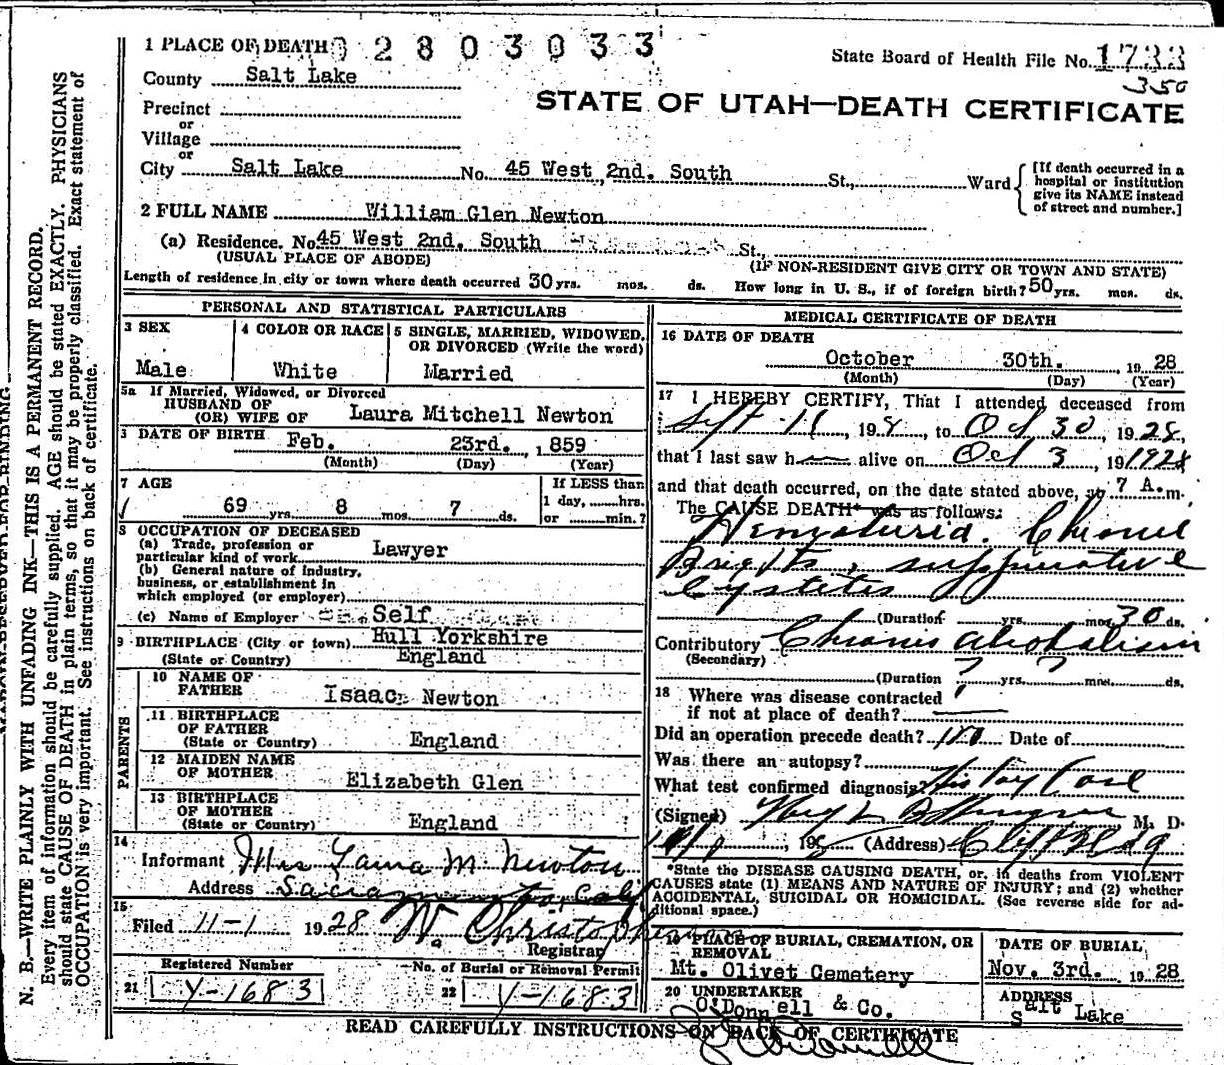 1 PLACE OF DEATH 0 2 8 0 3 0 3 3
State Board of Health File No. 1733
350
County Salt Lake
STATE OF UTAH—DEATH CERTIFICATE
Precinct
or
Village
or
City Salt Lake No. 45 West 2nd. South St., Ward
[If death occurred in a
hospital or institution
give its NAME instead
of street and number.]
2 FULL NAME William Glen Newton
(a) Residence. No. 45 West 2nd. South St.,
(USUAL PLACE OF ABODE) (IF NON-RESIDENT GIVE CITY OR TOWN AND STATE)
Length of residence in city or town where death occurred 30 yrs. mos. ds. How long in U. S., if of foreign birth? 50 yrs. mos. ds.
PERSONAL AND STATISTICAL PARTICULARS
3 SEX
Male
4 COLOR OR RACE
White
5 SINGLE, MARRIED, WIDOWED,
OR DIVORCED (Write the word)
Married
5a If Married, Widowed, or Divorced
HUSBAND OF
(OR) WIFE OF Laura Mitchell Newton
DATE OF BIRTH Feb. 23rd. 1859
(Month) (Day) (Year)
7 AGE
69 yrs. 8 mos. 7 ds.
If LESS than
1 day, hrs.
or min. ?
8 OCCUPATION OF DECEASED
(a) Trade, profession or
particular kind of work Lawyer
(b) General nature of industry,
business, or establishment in
which employed (or employer)
(c) Name of Employer Self
9 BIRTHPLACE (City or town) Hull Yorkshire
(State or Country) England
PARENTS
10 NAME OF
FATHER Isaac Newton
11 BIRTHPLACE
OF FATHER
(State or Country) England
12 MAIDEN NAME
OF MOTHER Elizabeth Glen
13 BIRTHPLACE
OF MOTHER
(State or Country) England
14
Informant Mrs Laura M. Newton
Address Sacramento, Calif
15
Filed 11-1 1928 W. Christopherson
Registrar
Registered Number
21 Y-1683
No. of Burial or Removal Permit
22 Y-1683
MEDICAL CERTIFICATE OF DEATH
16 DATE OF DEATH
October 30th. 1928
(Month) (Day) (Year)
17 I HEREBY CERTIFY, That I attended deceased from
Sept 11, 198, to Oct 30, 1928,
that I last saw h alive on Oct 3, 19 1928
and that death occurred, on the date stated above, at 7 A. m.
The CAUSE DEATH* was as follows:
Hematuria. Chronic
Brights, suppurative
Cystitis
(Duration yrs. mos. 30 ds.
Contributory Chronic alcoholism
(Secondary)
(Duration ? yrs. ? mos. ds.
18 Where was disease contracted
if not at place of death?
Did an operation precede death? no Date of
Was there an autopsy?
What test confirmed diagnosis? History Case
(Signed) M. D.
198 (Address) Cliff Bldg
*State the DISEASE CAUSING DEATH, or, in deaths from VIOLENT
CAUSES state (1) MEANS AND NATURE OF INJURY; and (2) whether
ACCIDENTAL, SUICIDAL OR HOMICIDAL. (See reverse side for ad-
ditional space.)
19 PLACE OF BURIAL, CREMATION, OR
REMOVAL
Mt. Olivet Cemetery
DATE OF BURIAL
Nov. 3rd. 1928
20 UNDERTAKER
O'Donnell & Co.
ADDRESS
Salt Lake
READ CAREFULLY INSTRUCTIONS ON BACK OF CERTIFICATE
N. B.—WRITE PLAINLY WITH UNFADING INK—THIS IS A PERMANENT RECORD.
Every item of information should be carefully supplied. AGE should be stated EXACTLY. PHYSICIANS
should state CAUSE OF DEATH in plain terms, so that it may be properly classified. Exact statement of
OCCUPATION is very important. See instructions on back of certificate.